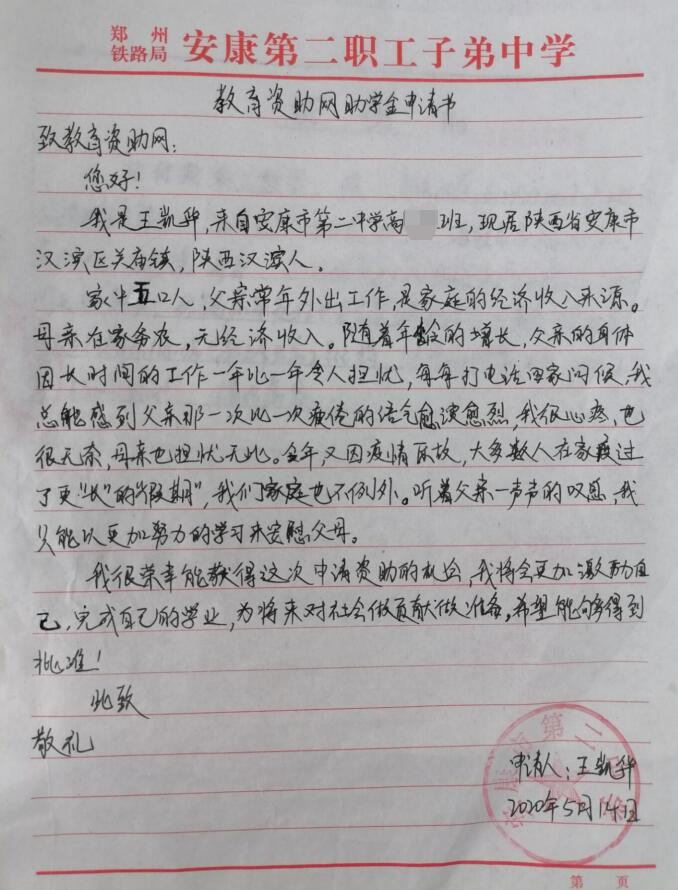 郑州
铁路局 安康第二职工子弟中学
教育资助网助学金申请书
致教育资助网：
您好！
我是王凯华，来自安康市第二中学高 班，现居陕西省安康市
汉滨区关庙镇，陕西汉滨人。
家中五口人，父亲常年外出工作，是家庭的经济收入来源。
母亲在家务农，无经济收入。随着年龄的增长，父亲的身体
因长时间的工作一年比一年令人担忧，每每打电话回家问候，我
总能感到父亲那一次比一次疲倦的语气愈演愈烈，我很心疼，也
很无奈，母亲也担忧无比。今年，又因疫情原故，大多数人在家度过
了更“长”的“假期”，我们家庭也不例外。听着父亲一声声的叹息，我
只能以更加努力的学习来安慰父母。
我很荣幸能获得这次申请资助的机会，我将会更加激励自
己，完成自己的学业，为将来对社会做贡献做准备。希望能够得到
批准！
此致
敬礼
申请人：王凯华
2020年5月14日
第 页